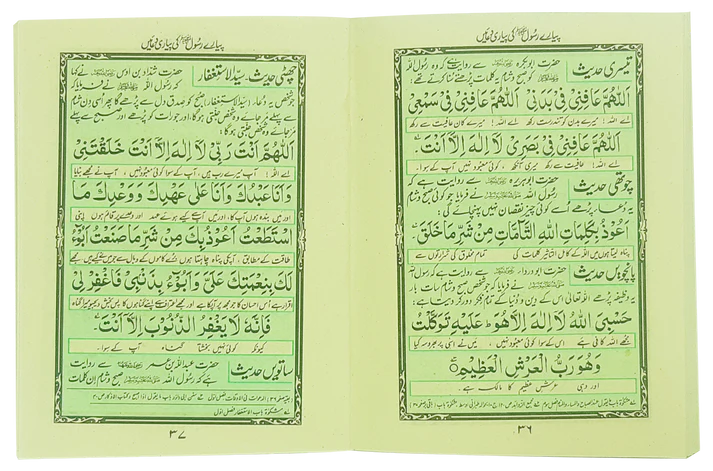 پیارے رسول ﷺ کی پیاری دعائیں
تیسری حدیث
حضرت ابوبکرہ رضی اللہ عنہ سے روایت ہے کہ وہ رسول اللہ
صبح و شام یہ کلمات پڑھتے سنا کرتے تھے:
اَللّٰهُمَّ عَافِنِيْ فِيْ بَدَنِيْ اَللّٰهُمَّ عَافِنِيْ فِيْ سَمْعِيْ
اے اللہ! میرے بدن کو تندرست رکھ اے اللہ! میرے کان عافیت سے رکھ
اَللّٰهُمَّ عَافِنِيْ فِيْ بَصَرِيْ لَا اِلٰهَ اِلَّا اَنْتَ
اے اللہ! عافیت سے رکھ میری آنکھ کوئی معبود نہیں آپ کے سوا۔
چوتھی حدیث
حضرت ابوہریرہ رضی اللہ عنہ سے روایت ہے کہ
رسول اللہ ﷺ نے فرمایا جو کوئی صبح و شام
یہ دعا پڑھے اُسے کوئی چیز نقصان نہیں پہنچائے گی:
اَعُوْذُ بِكَلِمَاتِ اللّٰهِ التَّآمَّاتِ مِنْ شَرِّ مَا خَلَقَ
پناہ لیتا ہوں میں اللہ کے کامل التاثیر کلمات کی تمام مخلوق کی شرارتوں سے
پانچویں حدیث
حضرت ابودرداء رضی اللہ عنہ سے روایت ہے کہ رسول اللہ
ﷺ نے فرمایا کہ جو شخص صبح و شام سات بار
یہ وظیفہ پڑھے اللہ تعالیٰ اس کے دین و دنیا کے تمام فکر دور کر دیتا ہے:
حَسْبِيَ اللّٰهُ لَا اِلٰهَ اِلَّا هُوَ عَلَيْهِ تَوَكَّلْتُ
مجھے اللہ کافی ہے اس کے سوا کوئی معبود نہیں، میں نے اسی پر بھروسہ کیا
وَهُوَ رَبُّ الْعَرْشِ الْعَظِيْمِ
اور وہی عرش عظیم کا مالک ہے۔
۳۶
پیارے رسول ﷺ کی پیاری دعائیں
چھٹی حدیث۔ سید الاستغفار
حضرت شداد بن اوس رضی اللہ عنہ نے کہا
کہ رسول اللہ ﷺ نے فرمایا کہ
جو شخص یہ دعا (سید الاستغفار) صبح کو صدق دل سے پڑھے گا پھر اسی دن شام
سے پہلے مر جائے وہ جنتی ہوگا، اور جو رات کو پڑھے اور صبح سے پہلے
مر جائے وہ جنتی ہوگا:
اَللّٰهُمَّ اَنْتَ رَبِّيْ لَا اِلٰهَ اِلَّا اَنْتَ خَلَقْتَنِيْ
اے اللہ! آپ میرے رب ہیں، آپ کے سوا کوئی معبود نہیں، آپ نے مجھے بنایا
وَاَنَا عَبْدُكَ وَاَنَا عَلٰى عَهْدِكَ وَوَعْدِكَ مَا
اور میں بندہ ہوں آپ کا، اور میں آپ سے کیے ہوئے عہد اور وعدے پر قائم ہوں اپنی
اسْتَطَعْتُ اَعُوْذُ بِكَ مِنْ شَرِّ مَا صَنَعْتُ اَبُوْٓءُ
طاقت کے مطابق، آپکی پناہ چاہتا ہوں
لَكَ بِنِعْمَتِكَ عَلَيَّ وَاَبُوْٓءُ بِذَنْبِيْ فَاغْفِرْ لِيْ
فَاِنَّهٗ لَا يَغْفِرُ الذُّنُوْبَ اِلَّا اَنْتَ
کیونکہ کوئی نہیں بخشتا گناہ آپ کے سوا۔
ساتویں حدیث
حضرت عبداللہ بن عمر رضی اللہ عنہ سے روایت
ہے کہ رسول اللہ ﷺ صبح و شام ان کلمات
۳۷